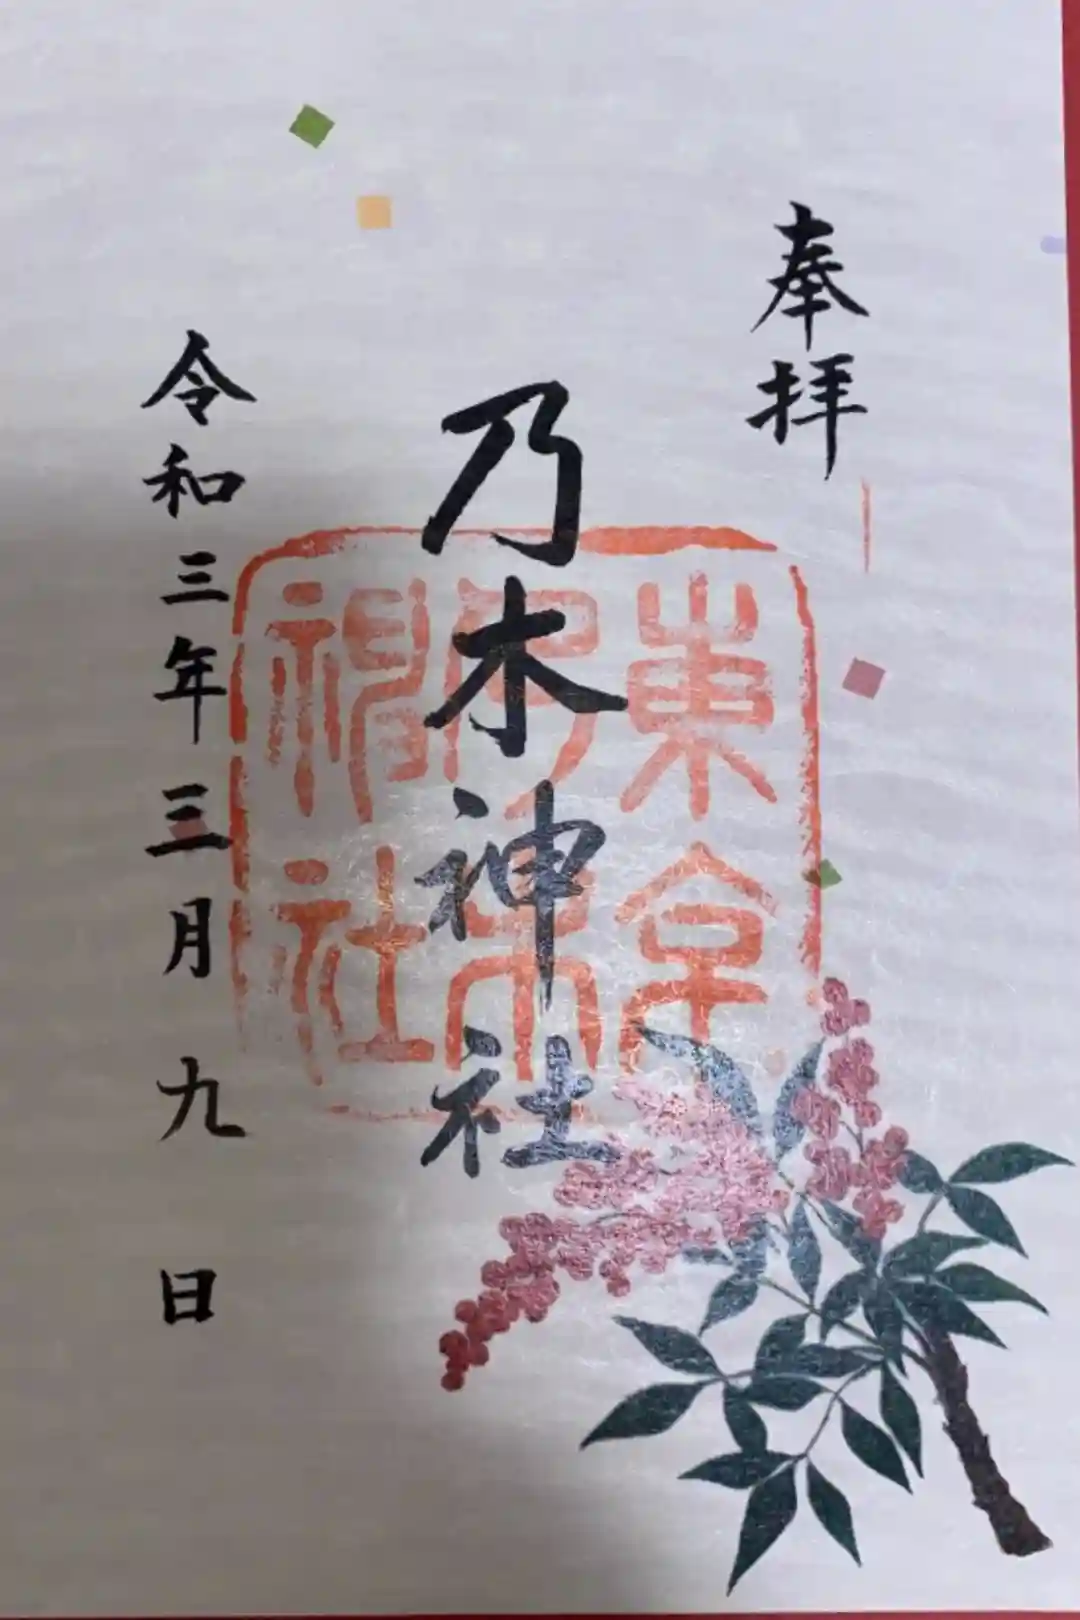 奉拝
乃木神社
令和三年三月九日
東京
乃木
神社